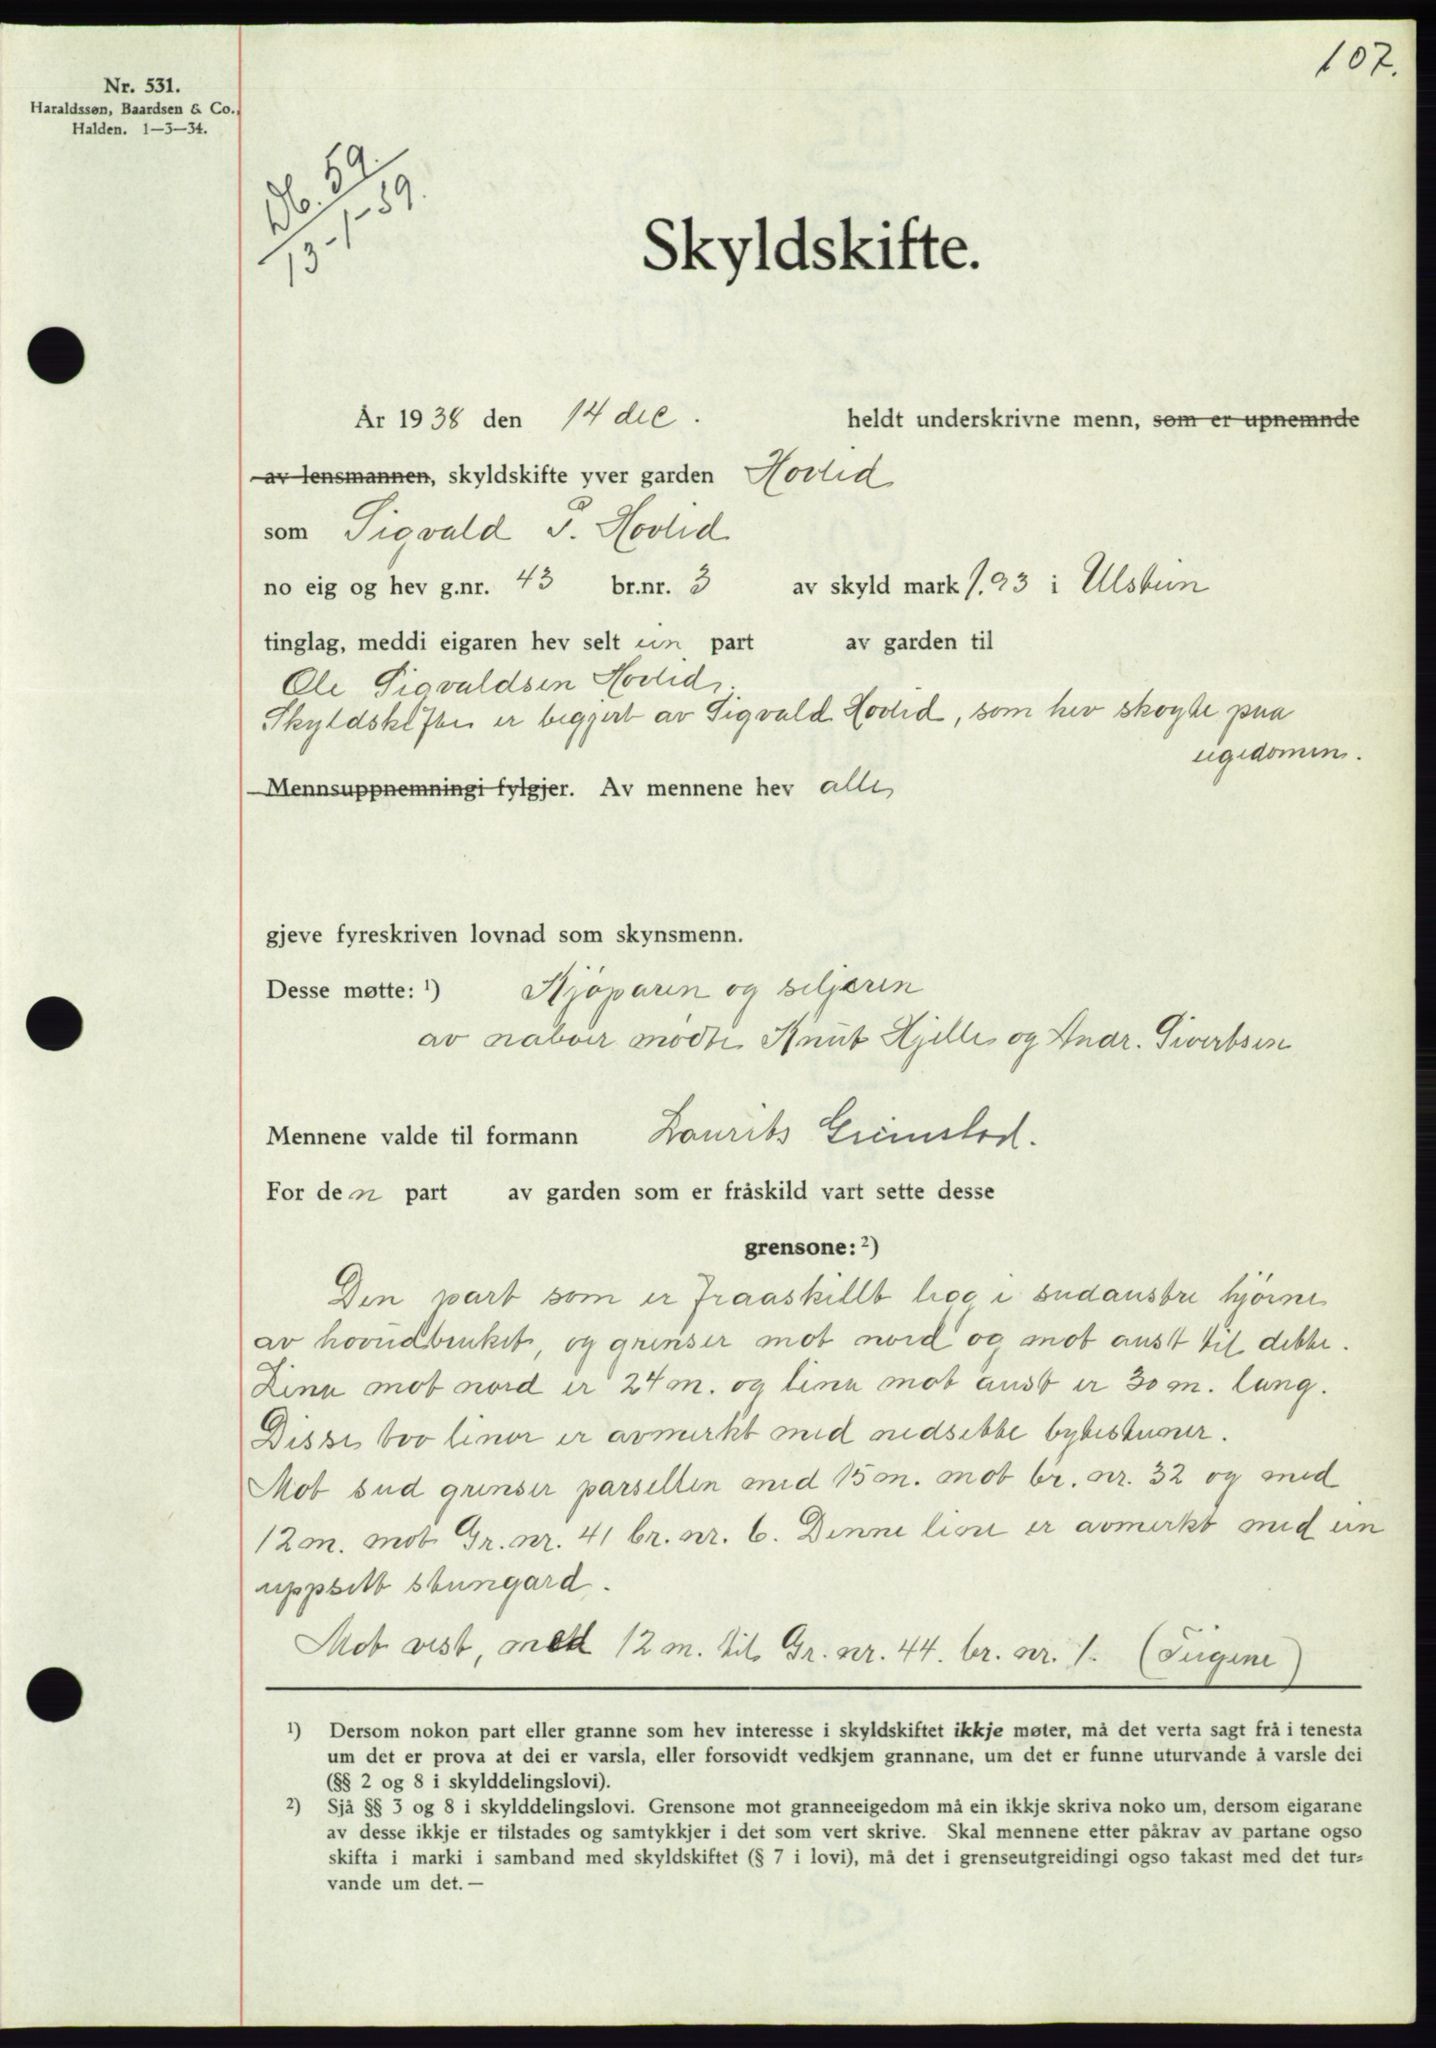 107.
Nr. 531.
Haraldssøn, Baardsen & Co.,
Halden. 1—3—34.
Db. 59.
13-1-39.
Skyldskifte.
År 1938 den 14 dec. heldt underskrivne menn, som er upnemnde
av lensmannen, skyldskifte yver garden Hovlid
som Sigvald P. Hovlid
no eig og hev g.nr. 43 br.nr. 3 av skyld mark 1.93 i Ulstein
tinglag, meddi eigaren hev selt ein part av garden til
Ole Sigvaldsen Hovlid.
Skyldskiftei er begjert av Sigvald Hovlid, som hev skøyte paa
eigedomen.
Mennsuppnemningi fylgjer. Av mennene hev alle
gjeve fyreskriven lovnad som skynsmenn.
Desse møtte: ¹) Kjøparen og seljaren
av naboer mødte Knut Hjelle og Andr. Sivertsen
Mennene valde til formann Laurits Grimstad.
For den part av garden som er fråskild vart sette desse
grensone: ²)
Den part som er fraaskillt ligg i sudaustre hjørne
av hovudbruket, og grenser mot nord og mot aust til dette.
Lina mot nord er 24 m. og lina mot aust er 30 m. lang.
Disse tvo linor er avmerkt med nedsette bytesteiner.
Mot sud grenser parsellen med 15 m. mot br. nr. 32 og med
12 m. mot Gr. nr. 41 br. nr. 6. Denne line er avmerkt med ein
uppsett steingard.
Mot vest, med 12 m. til Gr. nr. 44. br. nr. 1. (Teigene)
¹) Dersom nokon part eller granne som hev interesse i skyldskiftet ikkje møter, må det verta sagt frå i tenesta
um det er prova at dei er varsla, eller forsovidt vedkjem grannane, um det er funne uturvande å varsle dei
(§§ 2 og 8 i skylddelingslovi).
²) Sjå §§ 3 og 8 i skylddelingslovi. Grensone mot granneeigedom må ein ikkje skriva noko um, dersom eigarane
av desse ikkje er tilstades og samtykkjer i det som vert skrive. Skal mennene etter påkrav av partane ogso
skifta i marki i samband med skyldskiftet (§ 7 i lovi), må det i grenseutgreidingi ogso takast med det tur-
vande um det. —